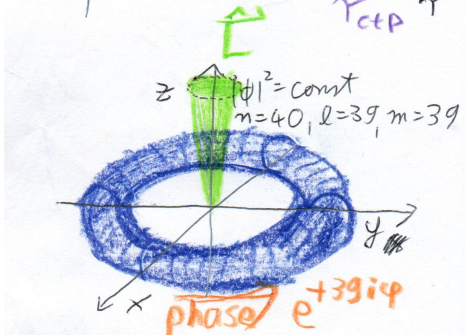 L
c+p
z |ψ|² = const
n=40, l=39, m=39
y
x
phase e^{+39iφ}